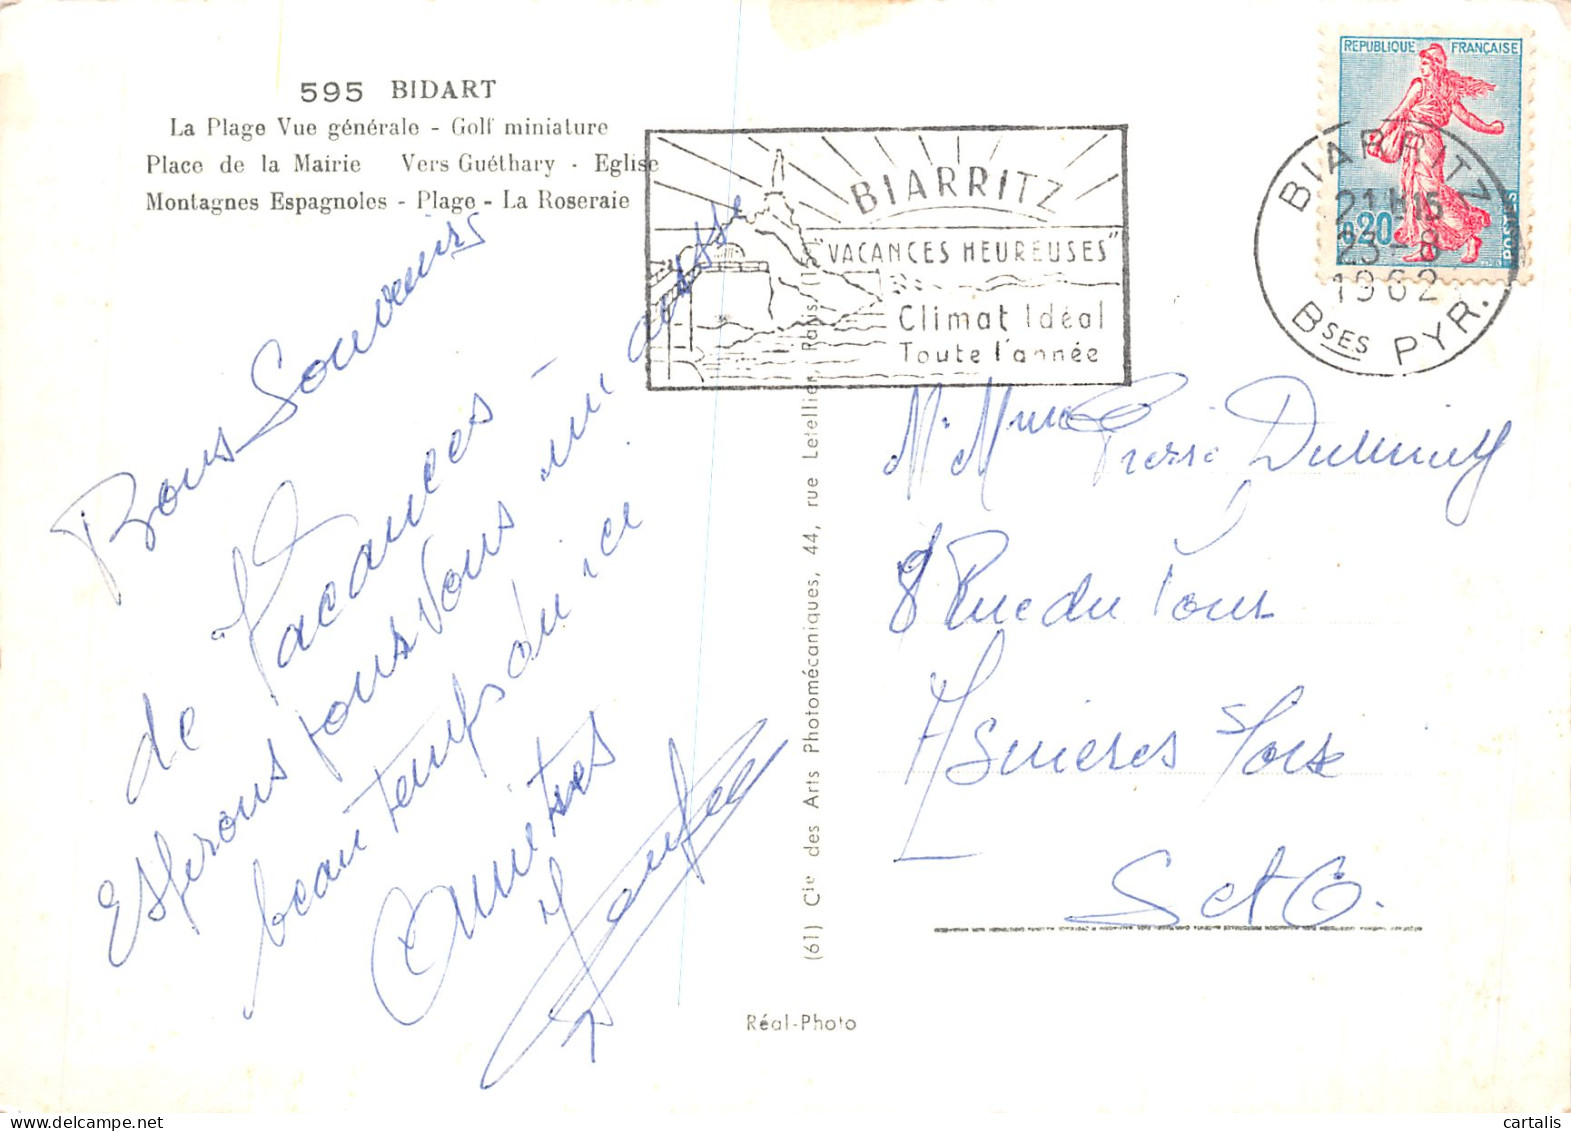 595 BIDART
La Plage Vue générale - Golf miniature
Place de la Mairie Vers Guéthary - Eglise
Montagnes Espagnoles - Plage - La Roseraie
Bons Souvenirs
de Vacances
Espérons pour vous un aussi
beau temps qu'ici
Amitiés
BIARRITZ
"VACANCES HEUREUSES"
Climat Idéal
Toute l'année
REPUBLIQUE FRANÇAISE
0,20
POSTES
BIARRITZ
21H15
23-8
1962
BSES PYR.
Mr Mme Pierre
8 Rue du Tour
Asnieres s/Oise
S et O.
(61) Cie des Arts Photomécaniques, 44, rue Letellier, Paris (15e
Réal-Photo
cartalis
www.delcampe.net